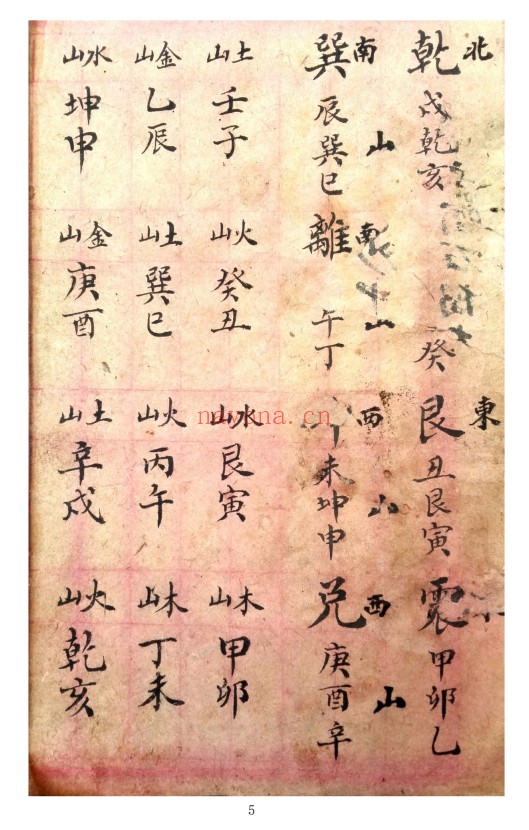 北
乾 戌乾亥
癸
東
艮 丑艮寅
震 甲卯乙
南山
巽 辰巽巳
南山
離 午丁
西山
未坤申
西山
兌 庚酉辛
土山 壬子
火山 癸丑
水山 艮寅
木山 甲卯
金山 乙辰
土山 巽巳
火山 丙午
木山 丁未
水山 坤申
金山 庚酉
土山 辛戌
火山 乾亥
nayona.cn
5